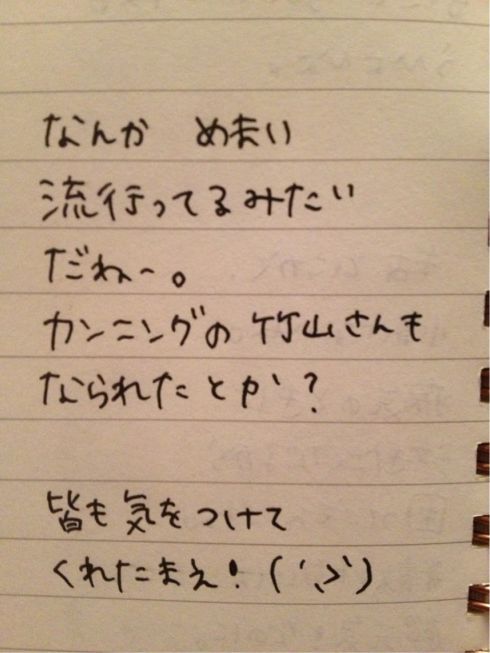 なんか　めまい
流行ってるみたい
だね〜。
カンニングの竹山さんも
なられたとか？
皆も気をつけて
くれたまえ！(´ښ｀)